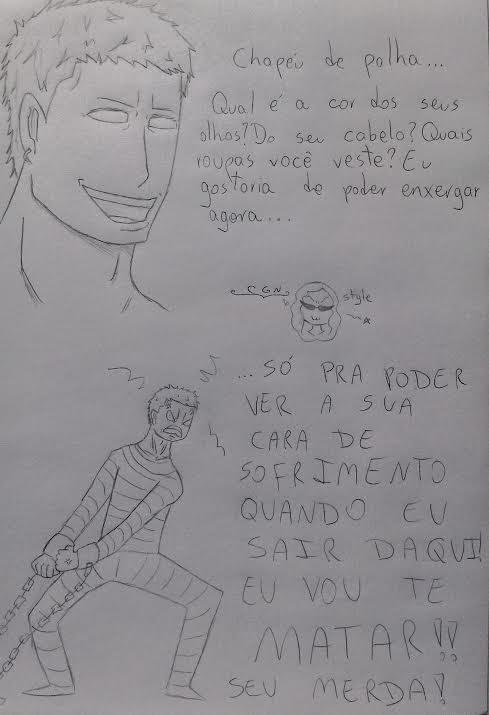 Chapéu de palha...
Qual é a cor dos seus
olhos? Do seu cabelo? Quais
roupas você veste? Eu
gostoria de poder enxergar
agora...
CGN
style
...SÓ PRA PODER
VER A SUA
CARA DE
SOFRIMENTO
QUANDO EU
SAIR DAQUI!
EU VOU TE
MATAR!!
SEU MERDA!